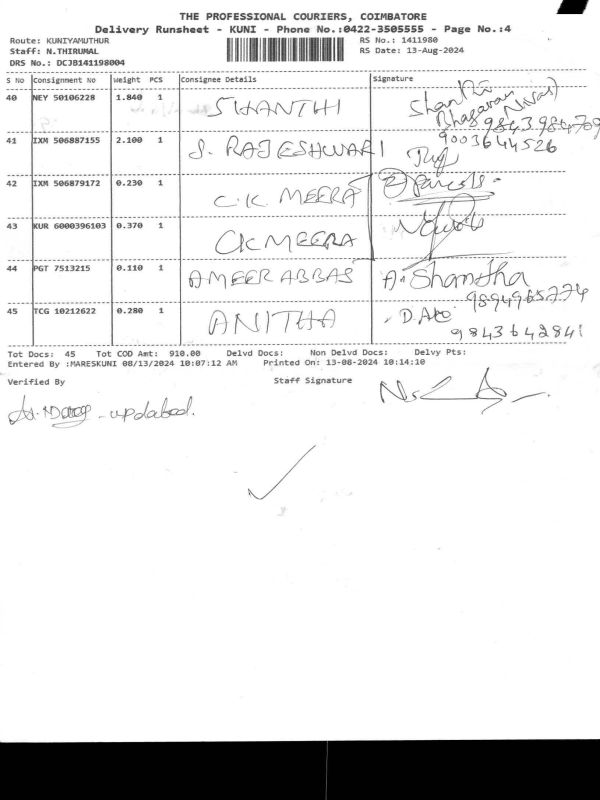 THE PROFESSIONAL COURIERS, COIMBATORE
Delivery Runsheet - KUNI - Phone No.:0422-3505555 - Page No.:4
Route: KUNIYAMUTHUR RS No.: 1411980
Staff: N.THIRUMAL RS Date: 13-Aug-2024
DRS No.: DCJB141198004
S No Consignment No Weight PCS Consignee Details Signature
40 NEY 50106228 1.840 1 SHANTHI Shanthi
Bhagavan Nivas)
9843984709
41 IXM 506887155 2.100 1 J. RAJESHWARI 9003644526
42 IXM 506879172 0.230 1 C.K MEERA 2 Parcels
43 KUR 6000396103 0.370 1 CK MEERA
44 PGT 7513215 0.110 1 AMEER ABBAS A. Shamtha
9894965774
45 TCG 10212622 0.280 1 ANITHA
9843642841
Tot Docs: 45 Tot COD Amt: 910.00 Delvd Docs: Non Delvd Docs: Delvy Pts:
Entered By :MARESKUNI 08/13/2024 10:07:12 AM Printed On: 13-08-2024 10:14:10
Verified By Staff Signature
- updated.